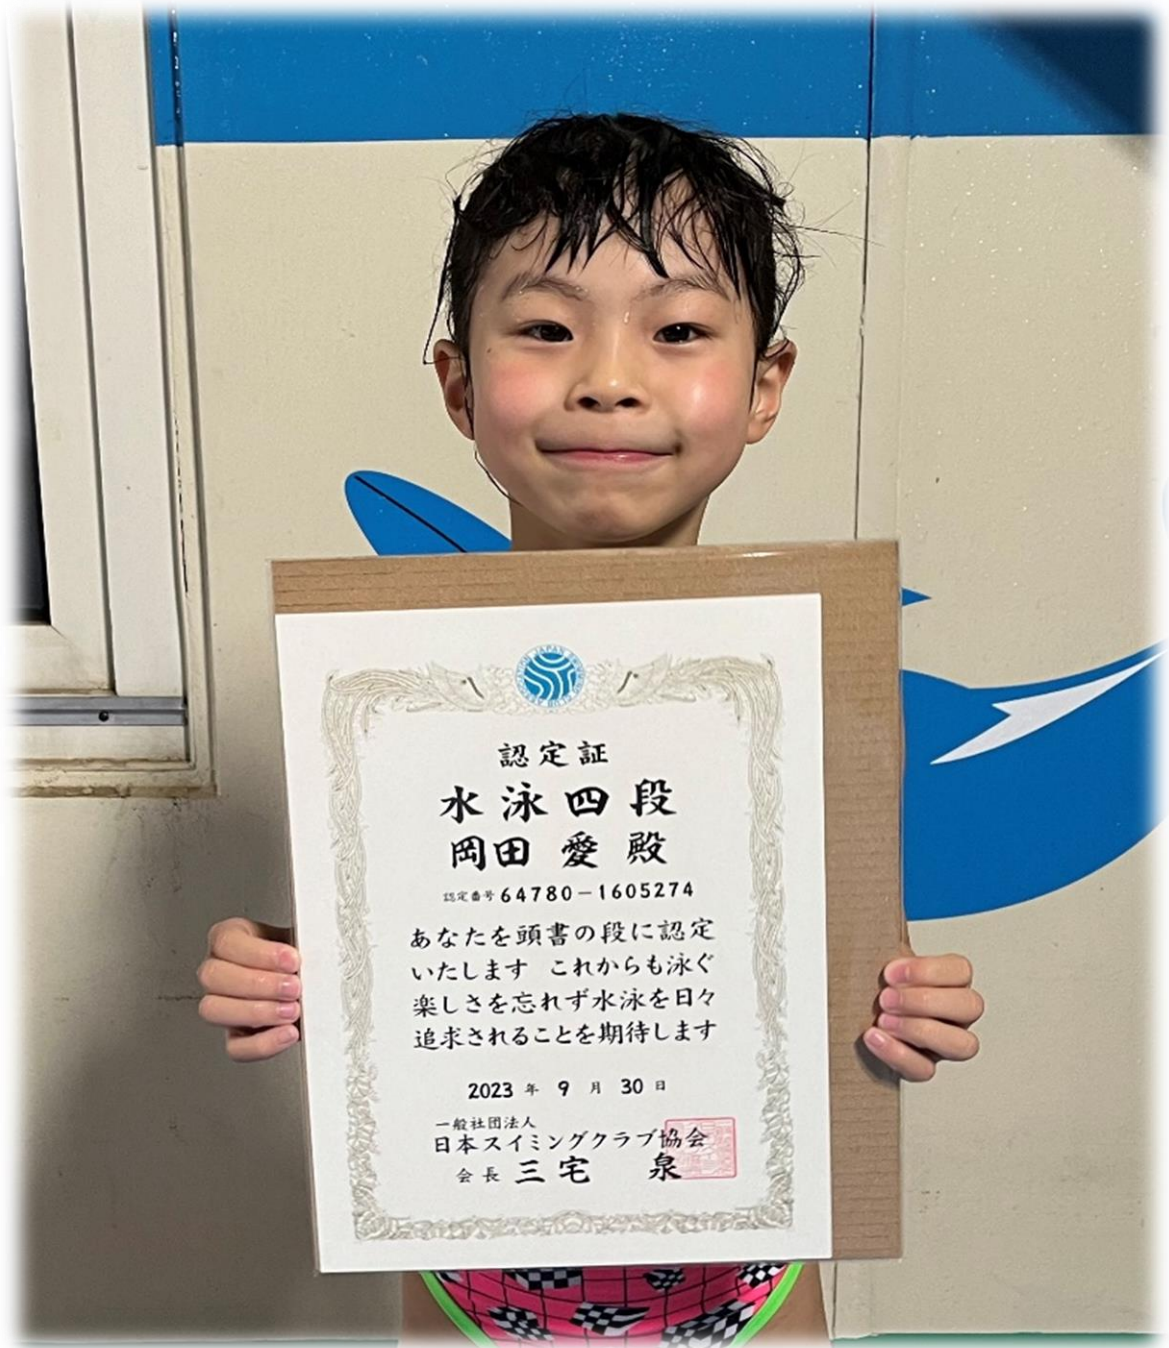 認定証
水泳四段
岡田 愛 殿
認定番号 64780-1605274
あなたを頭書の段に認定
いたします これからも泳ぐ
楽しさを忘れず水泳を日々
追求されることを期待します
2023 年 9 月 30 日
一般社団法人
日本スイミングクラブ協会
会長 三宅 泉